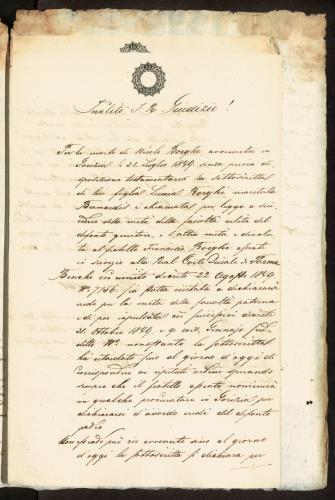 Inclito I. R. Giudizio!
Per la morte di Nicolo Borghi avvenuta in
Gorizia li 31 Luglio 1849 senza previa di-
sposizione testamentaria la sottoscritta
di lui figlia Luccia Borghi maritata
Bernardis è chiamata per legge a suc-
cedere della metà della facoltà relitta del
defonto genitore, e l'altra metà è devolu-
ta al fratello Francesco Borghi assente
in servizio alla Real Corte Ducale di Parma
Benchè con decreto 22 Agosto 1849
N° sia stata invitata a dichiararsi
erede per la metà della facoltà paterna
e di poi con decreti
31 Ottobre 1849 e
N° la sottoscritta
ha ritardato fino al giorno d'oggi di
corrispondere ai ordini sperando
sempre che il fratello assente nominerà
un qualche procuratore in Gorizia per
dichiararsi d'accordo eredi del defonto
padre
Non essendo più ciò avvenuto sino al giorno
d'oggi la sottoscritta si dichiara per